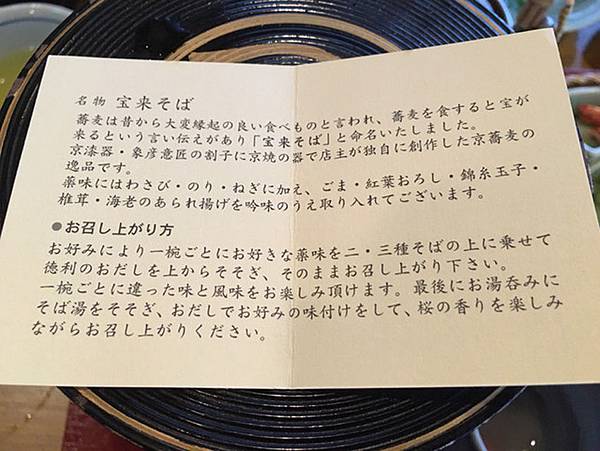 名物 宝来そば
蕎麦は昔から大変縁起の良い食べものと言われ、蕎麦を食すると宝が
来るという言い伝えがあり「宝来そば」と命名いたしました。
京漆器・象彦意匠の割子に京焼の器で店主が独自に創作した京蕎麦の
逸品です。
薬味にはわさび・のり・ねぎに加え、ごま・紅葉おろし・錦糸玉子・
椎茸・海老のあられ揚げを吟味のうえ取り入れてございます。
●お召し上がり方
お好みにより一椀ごとにお好きな薬味を二・三種そばの上に乗せて
徳利のおだしを上からそそぎ、そのままお召し上がり下さい。
一椀ごとに違った味と風味をお楽しみ頂けます。最後にお湯呑みに
そば湯をそそぎ、おだしでお好みの味付けをして、桜の香りを楽しみ
ながらお召し上がりください。